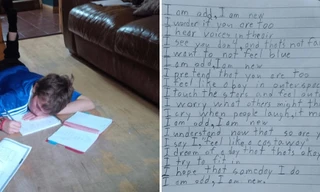 I am odd, I am new
I wonder if you are too
I hear voices in the air
I see you don't, and that's not fair
I want to not feel blue
I am odd, I am new
I pretend that you are too
I feel like a boy in outer space
I touch the stars and feel out
I worry what others might th
I cry when people laugh, it m
I am odd, I am new
I understand now that so are y
I say I, "feel like a castaway"
I dream of a day that that's okay
I try to fit in
I hope that someday I do
I am odd, I am new.